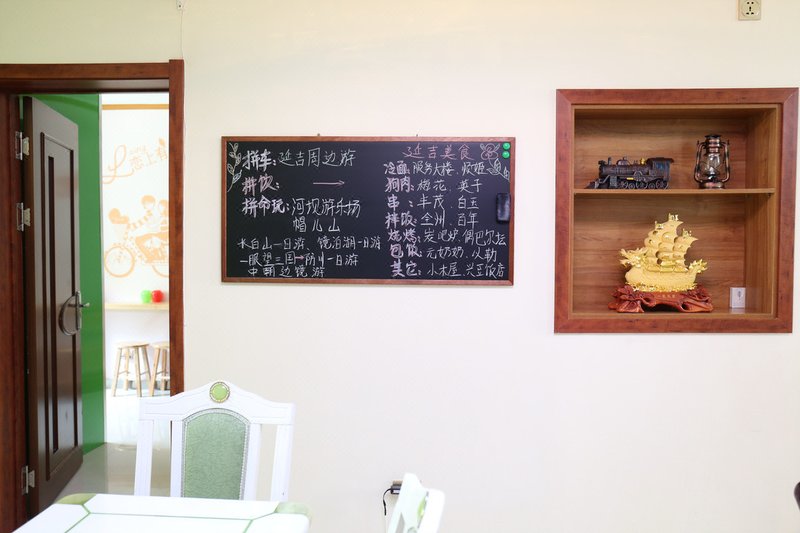 恋上有
拼车：延吉周边游
拼饮：
拼命玩：河坝游乐场
帽儿山
长白山一日游、镜泊湖一日游
一眼望三国→防川一日游
中朝边境游
延吉美食
冷面：服务大楼、顺姬
狗肉：梅花、英子
串：丰茂、白玉
拌饭：全州、百年
烧烤：炭吧炉、偶巴尔坛
包饭：元奶奶、火勒
其它：小木屋、兴豆饭店